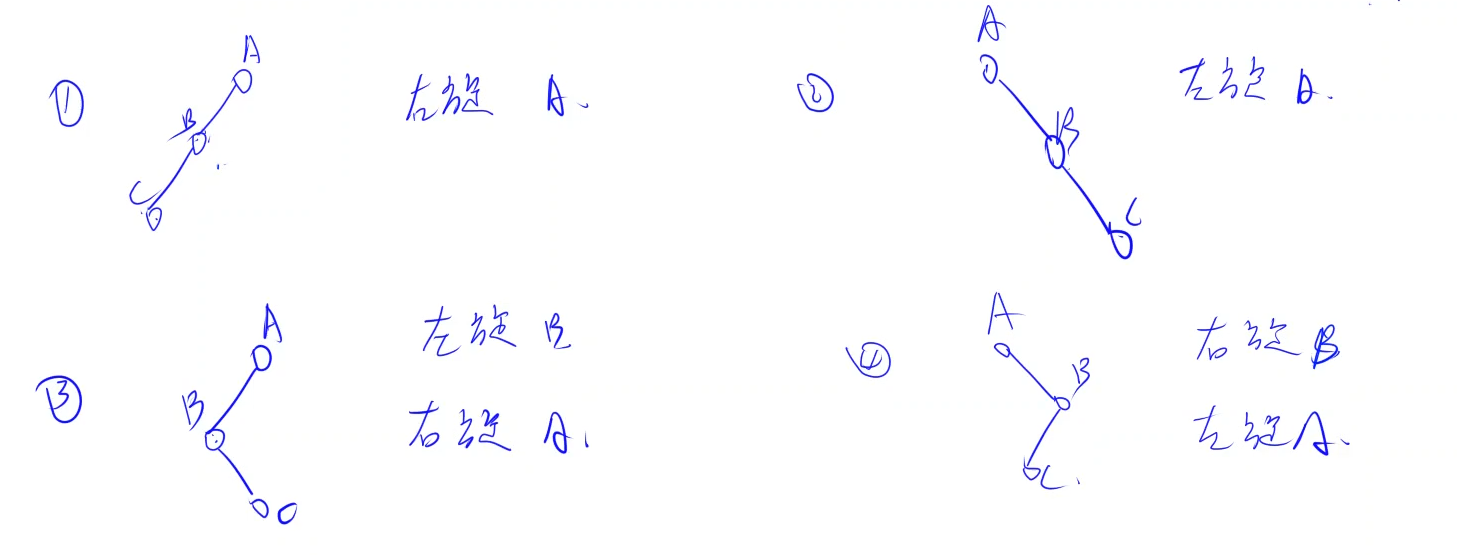 ① A B C 右旋 A.
② A B C 左旋 A.
③ A B C 左旋 B
右旋 A.
④ A B C. 右旋 B
左旋 A.